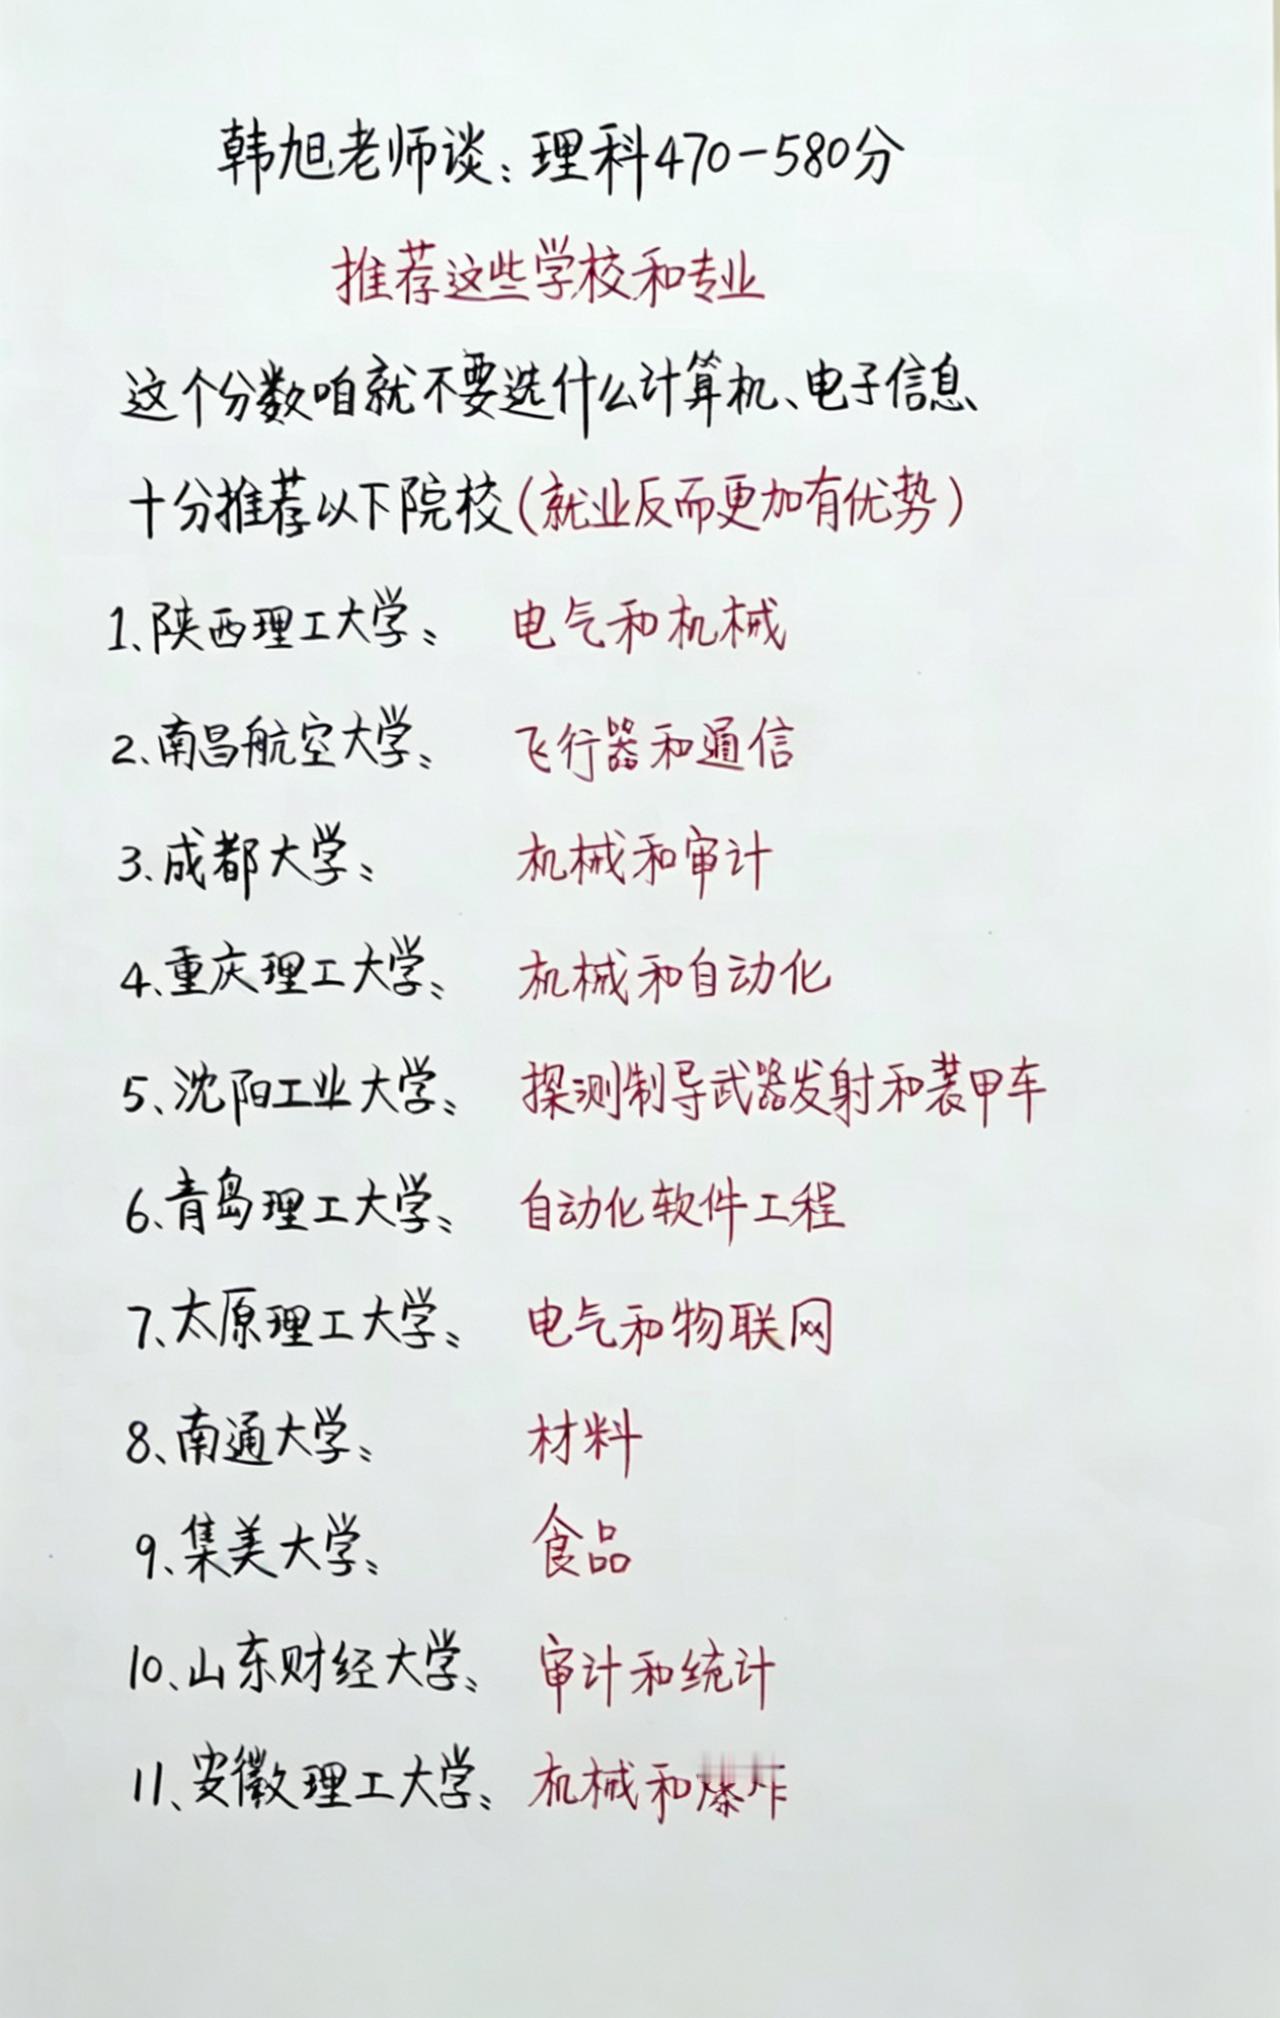 韩旭老师谈：理科470-580分
推荐这些学校和专业
这个分数咱就不要选什么计算机、电子信息
十分推荐以下院校（就业反而更加有优势）
1、陕西理工大学： 电气和机械
2、南昌航空大学： 飞行器和通信
3、成都大学： 机械和审计
4、重庆理工大学： 机械和自动化
5、沈阳工业大学： 探测制导武器发射和装甲车
6、青岛理工大学： 自动化软件工程
7、太原理工大学： 电气和物联网
8、南通大学： 材料
9、集美大学： 食品
10、山东财经大学： 审计和统计
11、安徽理工大学： 机械和爆炸